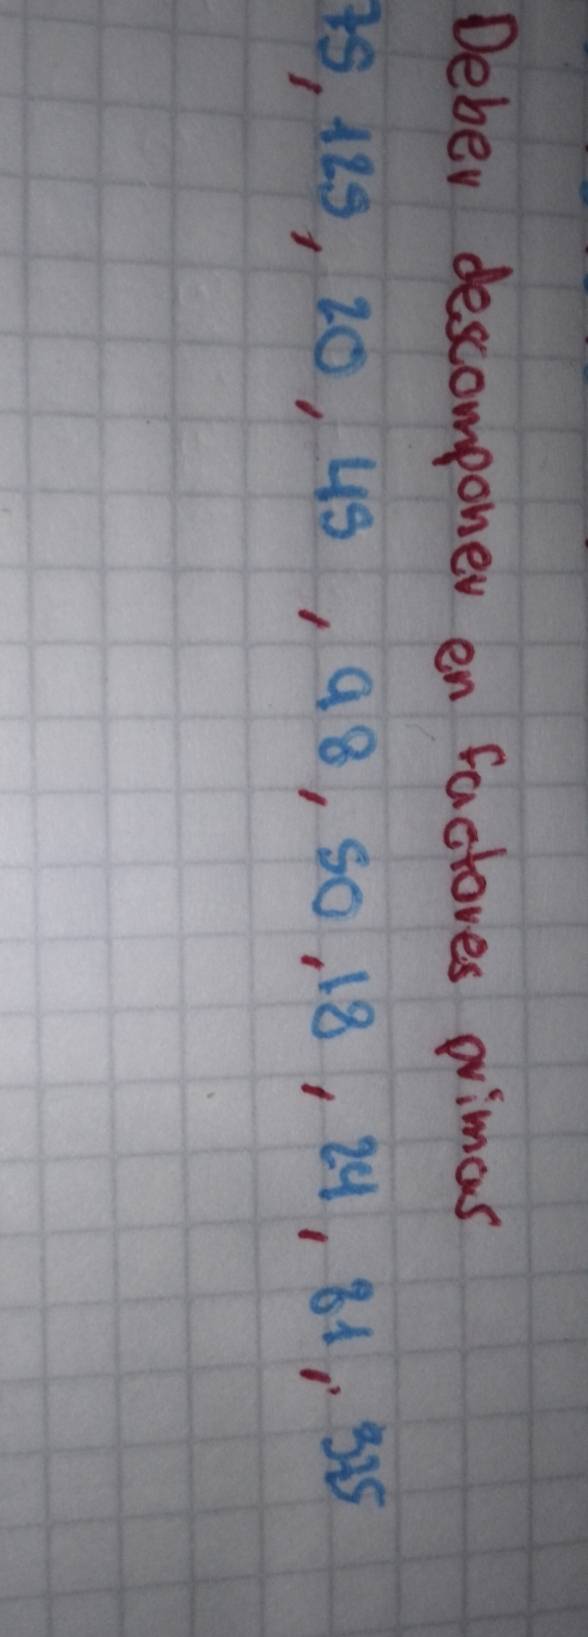 Deber descomponer en factores primos
75, 125, 20, 45, 98, 50, 18, 24, 81, 325